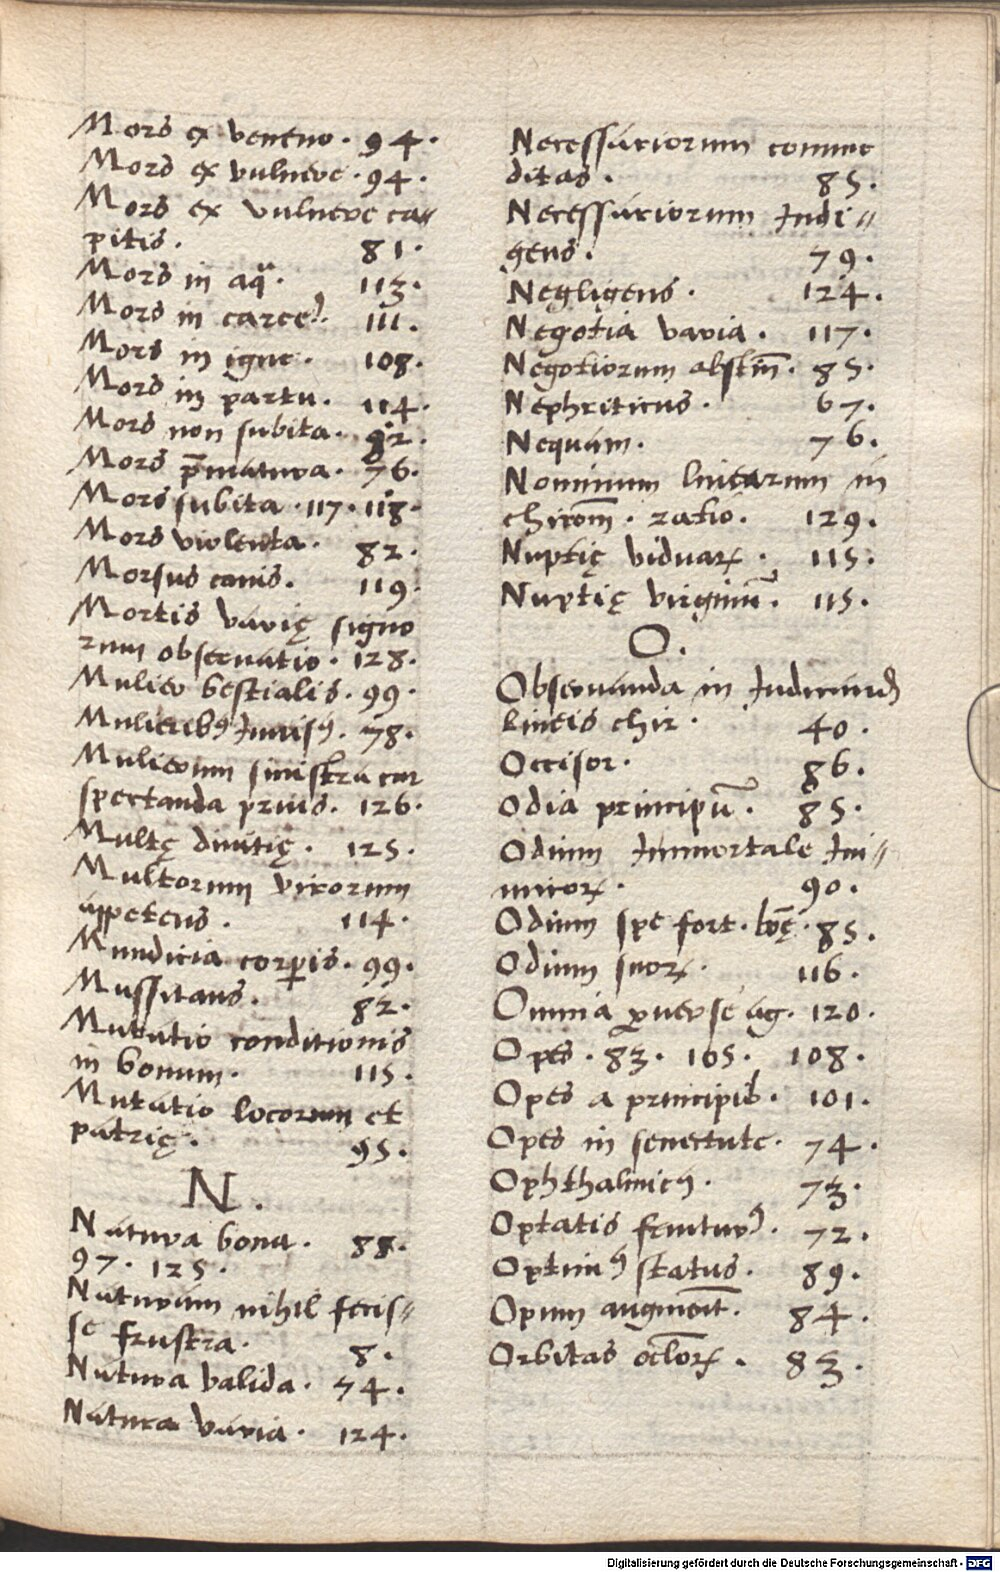 Mors ex veneno · 94 ·
Mors ex vulnere · 94 ·
Mors ex vulnere ca〃
pitis · 81 ·
Mors in aq̃ · 113 ·
Mors in carceꝝ · 111 ·
Mors in igne · 108 ·
Mors in partu · 114 ·
Mors non subita · 92 ·
Mors p̄matura · 76 ·
Mors subita · 117 · 118 ·
Mors violenta · 82 ·
Morsus canis · 119 ·
Mortis varię signo
rum obseruatio · 128 ·
Mulier bestialis · 99 ·
Mulieribꝰ Inuisꝰ · 78 ·
Mulierum sinistra con
spectanda prius · 126 ·
Multę diuitię · 125 ·
Multorum virorum
appetens · 114 ·
Mundicia corꝑis · 99 ·
Mussitans · 82 ·
Mutatio conditionis
in bonum · 115 ·
Mutatio locorum et
patrię · 95 ·
N ·
Natura bona · 88 ·
97 · 125 ·
Naturam nihil fecis〃
se frustra · 8 ·
Natura valida · 74 ·
Natura varia · 124 ·
Necessariorum commo
ditas · 85 ·
Necessariorum Indi〃
gens · 79 ·
Negligens · 124 ·
Negotia varia · 117 ·
Negotiorum abstin̄ · 85 ·
Nephriticus · 67 ·
Nequam · 76 ·
Nominum linearum in
chirom̄ · ratio · 129 ·
Nuptię viduaꝝ · 115 ·
Nuptię virginū · 115 ·
O ·
Obseruanda in Iudicand
lineis chir · 40 ·
Occisor · 86 ·
Odia principū · 85 ·
Odium Immortale Ini〃
micoꝝ · 90 ·
Odium spe fort · bōę · 85 ·
Odium suoꝝ · 116 ·
Omnia ꝑuerse ag · 120 ·
Opes · 83 · 105 · 108 ·
Opes a principib · 101 ·
Opes in senectute · 74 ·
Ophthalmicꝰ · 73 ·
Optatis fruiturꝰ · 72 ·
Optimꝰ status · 89 ·
Opum augmēt · 84 ·
Orbitas oc̄loꝝ · 83 ·
Digitalisierung gefördert durch die Deutsche Forschungsgemeinschaft · DFG